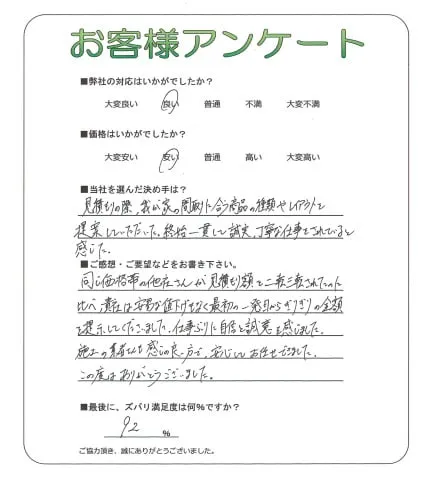 お客様アンケート
■弊社の対応はいかがでしたか?
大変良い 良い 普通 不満 大変不満
■価格はいかがでしたか?
大変安い 安い 普通 高い 大変高い
■当社を選んだ決め手は?
見積もりの際、我が家の間取りに合う商品の種類やレイアウトを
提案していただいた。終始一貫して誠実、丁寧な仕事をされていると
感じた。
■ご感想・ご要望などをお書き下さい。
同じ価格帯の他店さんが見積もり額を二転三転されていたのに
比べ、貴社は安易な値下げもなく最初の一発目からぎりぎりの金額
を提示してくださいました。仕事ぶりに自信と誠意を感じました。
施工の業者さんも感じの良い方で、安心してお任せできました。
この度はありがとうございました。
■最後に、ズバリ満足度は何%ですか?
92 %
ご協力頂き、誠にありがとうございました。